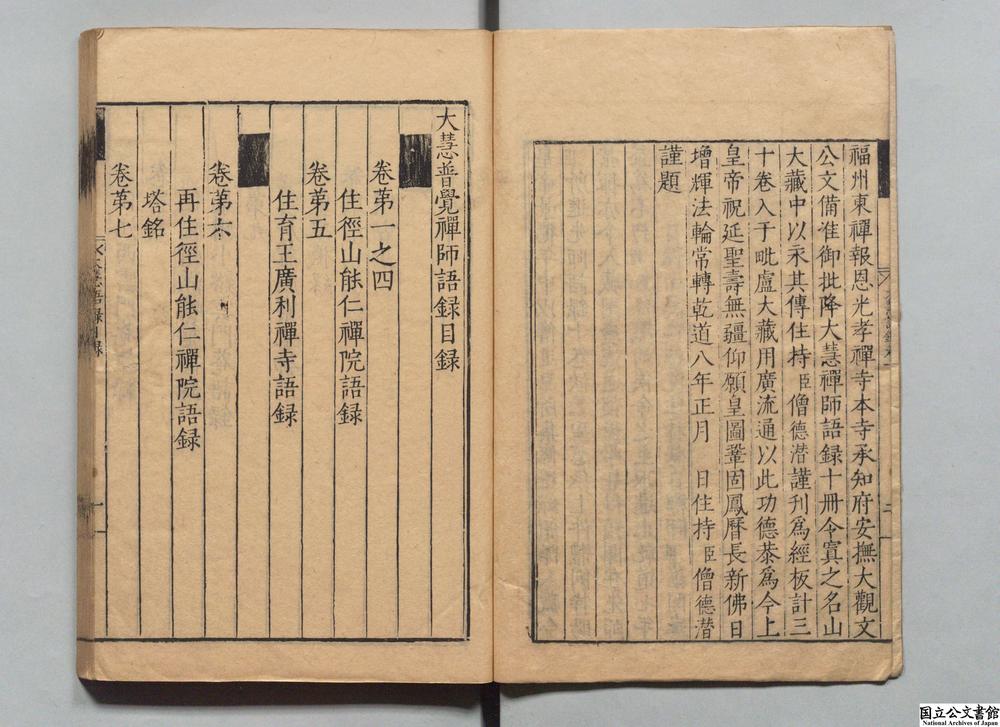 福州東禪報恩光孝禪寺本寺承知府安撫大觀文
公文備准御批降大慧禪師語録十冊令寘之名山
大藏中以永其傳住持臣僧德潜謹刊爲經板計三
十卷入于毗盧大藏用廣流通以此功德恭爲今上
皇帝祝延聖壽無疆仰願皇圖鞏固鳳曆長新佛日
增輝法輪常轉乾道八年正月　日住持臣僧德潜
謹題
大慧普覺禪師語録目録
卷苐一之四
住徑山能仁禪院語録
卷苐五
住育王廣利禪寺語録
卷苐六
再住徑山能仁禪院語録
塔銘
卷苐七
大慧語録目録
一
国立公文書館
National Archives of Japan